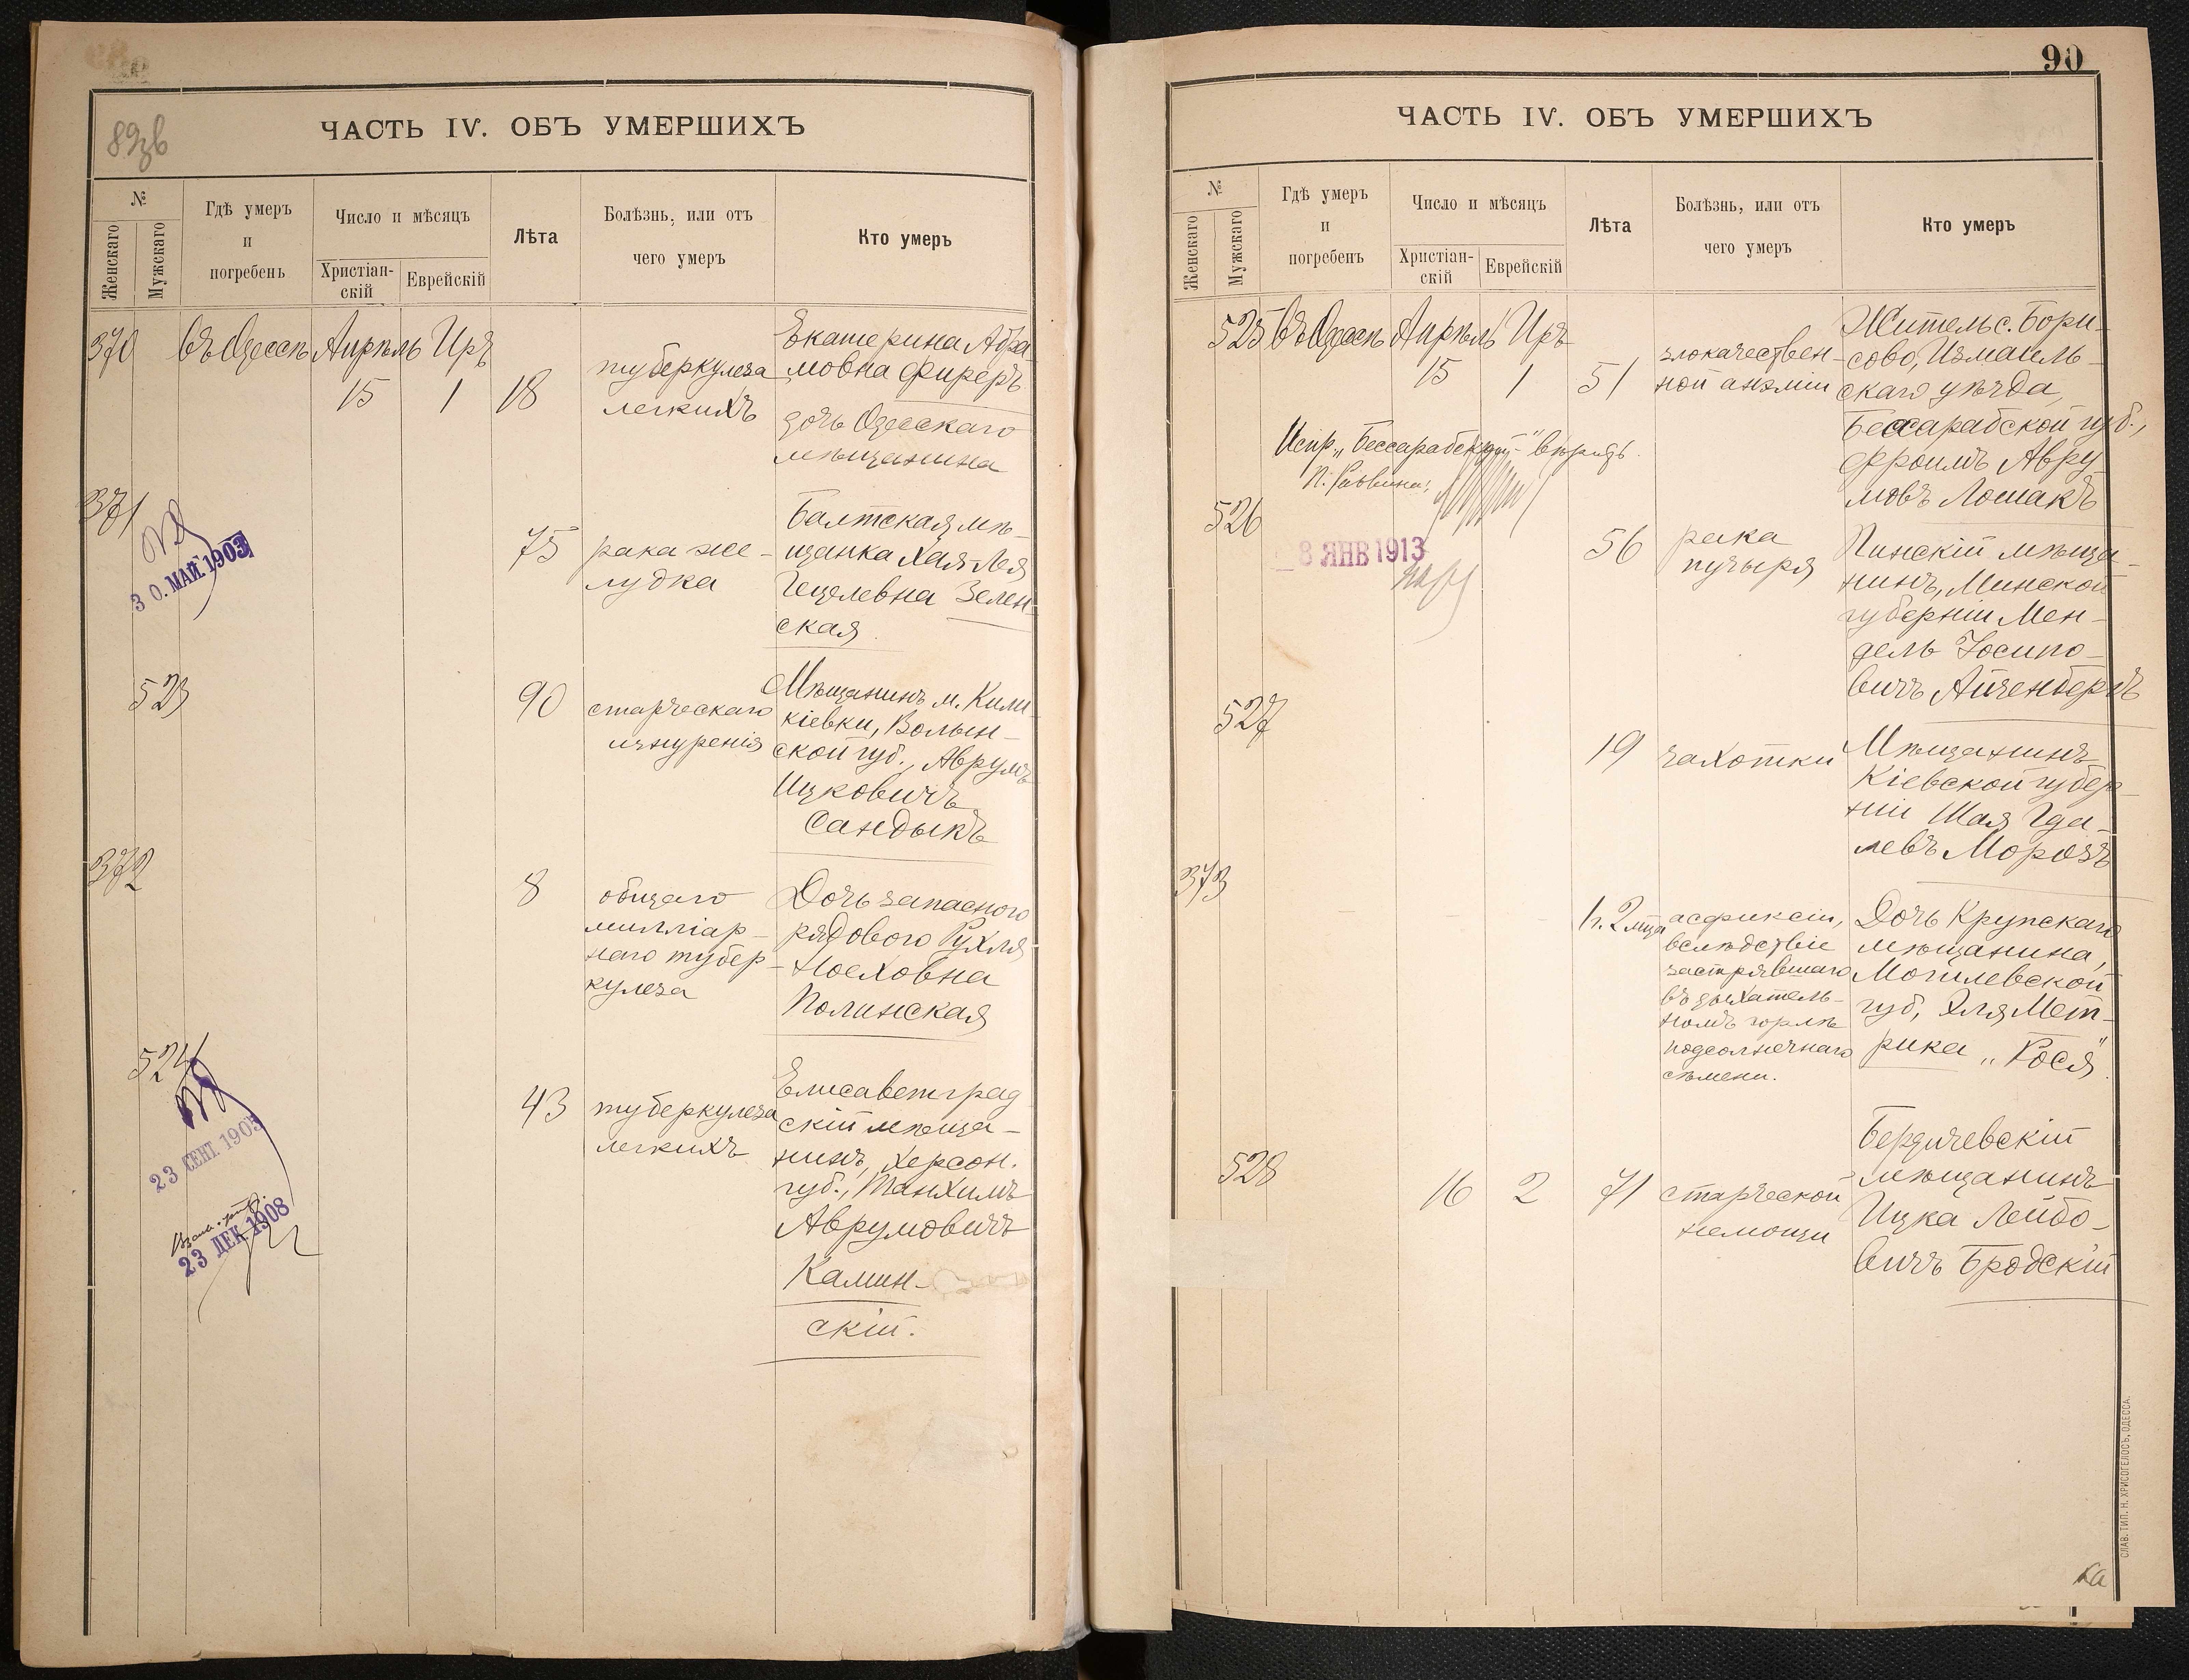 89зв
ЧАСТЬ IV. ОБЪ УМЕРШИХЪ
№
Женскаго
Мужскаго
Гдѣ умеръ
и
погребенъ
Число и мѣсяцъ
Христіан-
скій
Еврейскій
Лѣта
Болѣзнь, или отъ
чего умеръ
Кто умеръ
370 въ Одессѣ Апрѣль Иръ
15 1 18
туберкулеза
легкихъ
Екатерина Абра-
мовна Фиреръ
дочь Одесскаго
мѣщанина
371
30. МАЙ 1903
75
рака же-
лудка
Балтская мѣ-
щанка Хая-Лея
Гецелевна Зелен-
ская
523
90
старческаго
изнуренія
Мѣщанинъ м. Кили-
кіевки, Волын-
ской губ., Аврумъ
Ицковичъ
Сандыкъ
372
8
общаго
милліар-
наго тубер-
кулеза
Дочь запаснаго
рядового Рухля
Ноеховна
Полинская
524
23 СЕНТ 1905
23 ДЕК 1908
43
туберкулеза
легкихъ
Елисаветград-
скій мѣща-
нинъ, Херсон.
губ., Танхимъ
Аврумовичъ
Камин-
скій.
90
ЧАСТЬ IV. ОБЪ УМЕРШИХЪ
№
Женскаго
Мужскаго
Гдѣ умеръ
и
погребенъ
Число и мѣсяцъ
Христіан-
скій
Еврейскій
Лѣта
Болѣзнь, или отъ
чего умеръ
Кто умеръ
525 въ Одессѣ Апрѣль Иръ
15 1 51
злокачествен-
ной анэміи
Житель с. Бори-
сово, Измаиль-
скаго уѣзда,
Бессарабской губ.,
Фроимъ Авру-
мовъ Лошакъ
Испр. „Бессарабской" вѣрить.
П. Раввина:
526
8 ЯНВ 1913
56
рака
пузыря
Пинскій мѣща-
нинъ, Минской
губерніи Мен-
дель Іосипо-
вичъ Айзенбергъ
527
19
чахотки
Мѣщанинъ
Кіевской губер-
ніи Шая Гда-
левъ Морозъ
373
1 г. 2 мца
асфиксіи,
вслѣдствіе
застрявшаго
въ дыхатель-
номъ горлѣ
подсолнечнаго
сѣмени.
Дочь Крупскаго
мѣщанина,
Могилевской
губ, Эля Мет-
рика „Рося"
528
16 2 71
старческой
немощи
Бердичевскій
мѣщанинъ
Ицка Лейбо-
вичъ Бродскій
СЛАВ. ТИП. Н. ХРИСОГЕЛОСЪ, ОДЕССА.